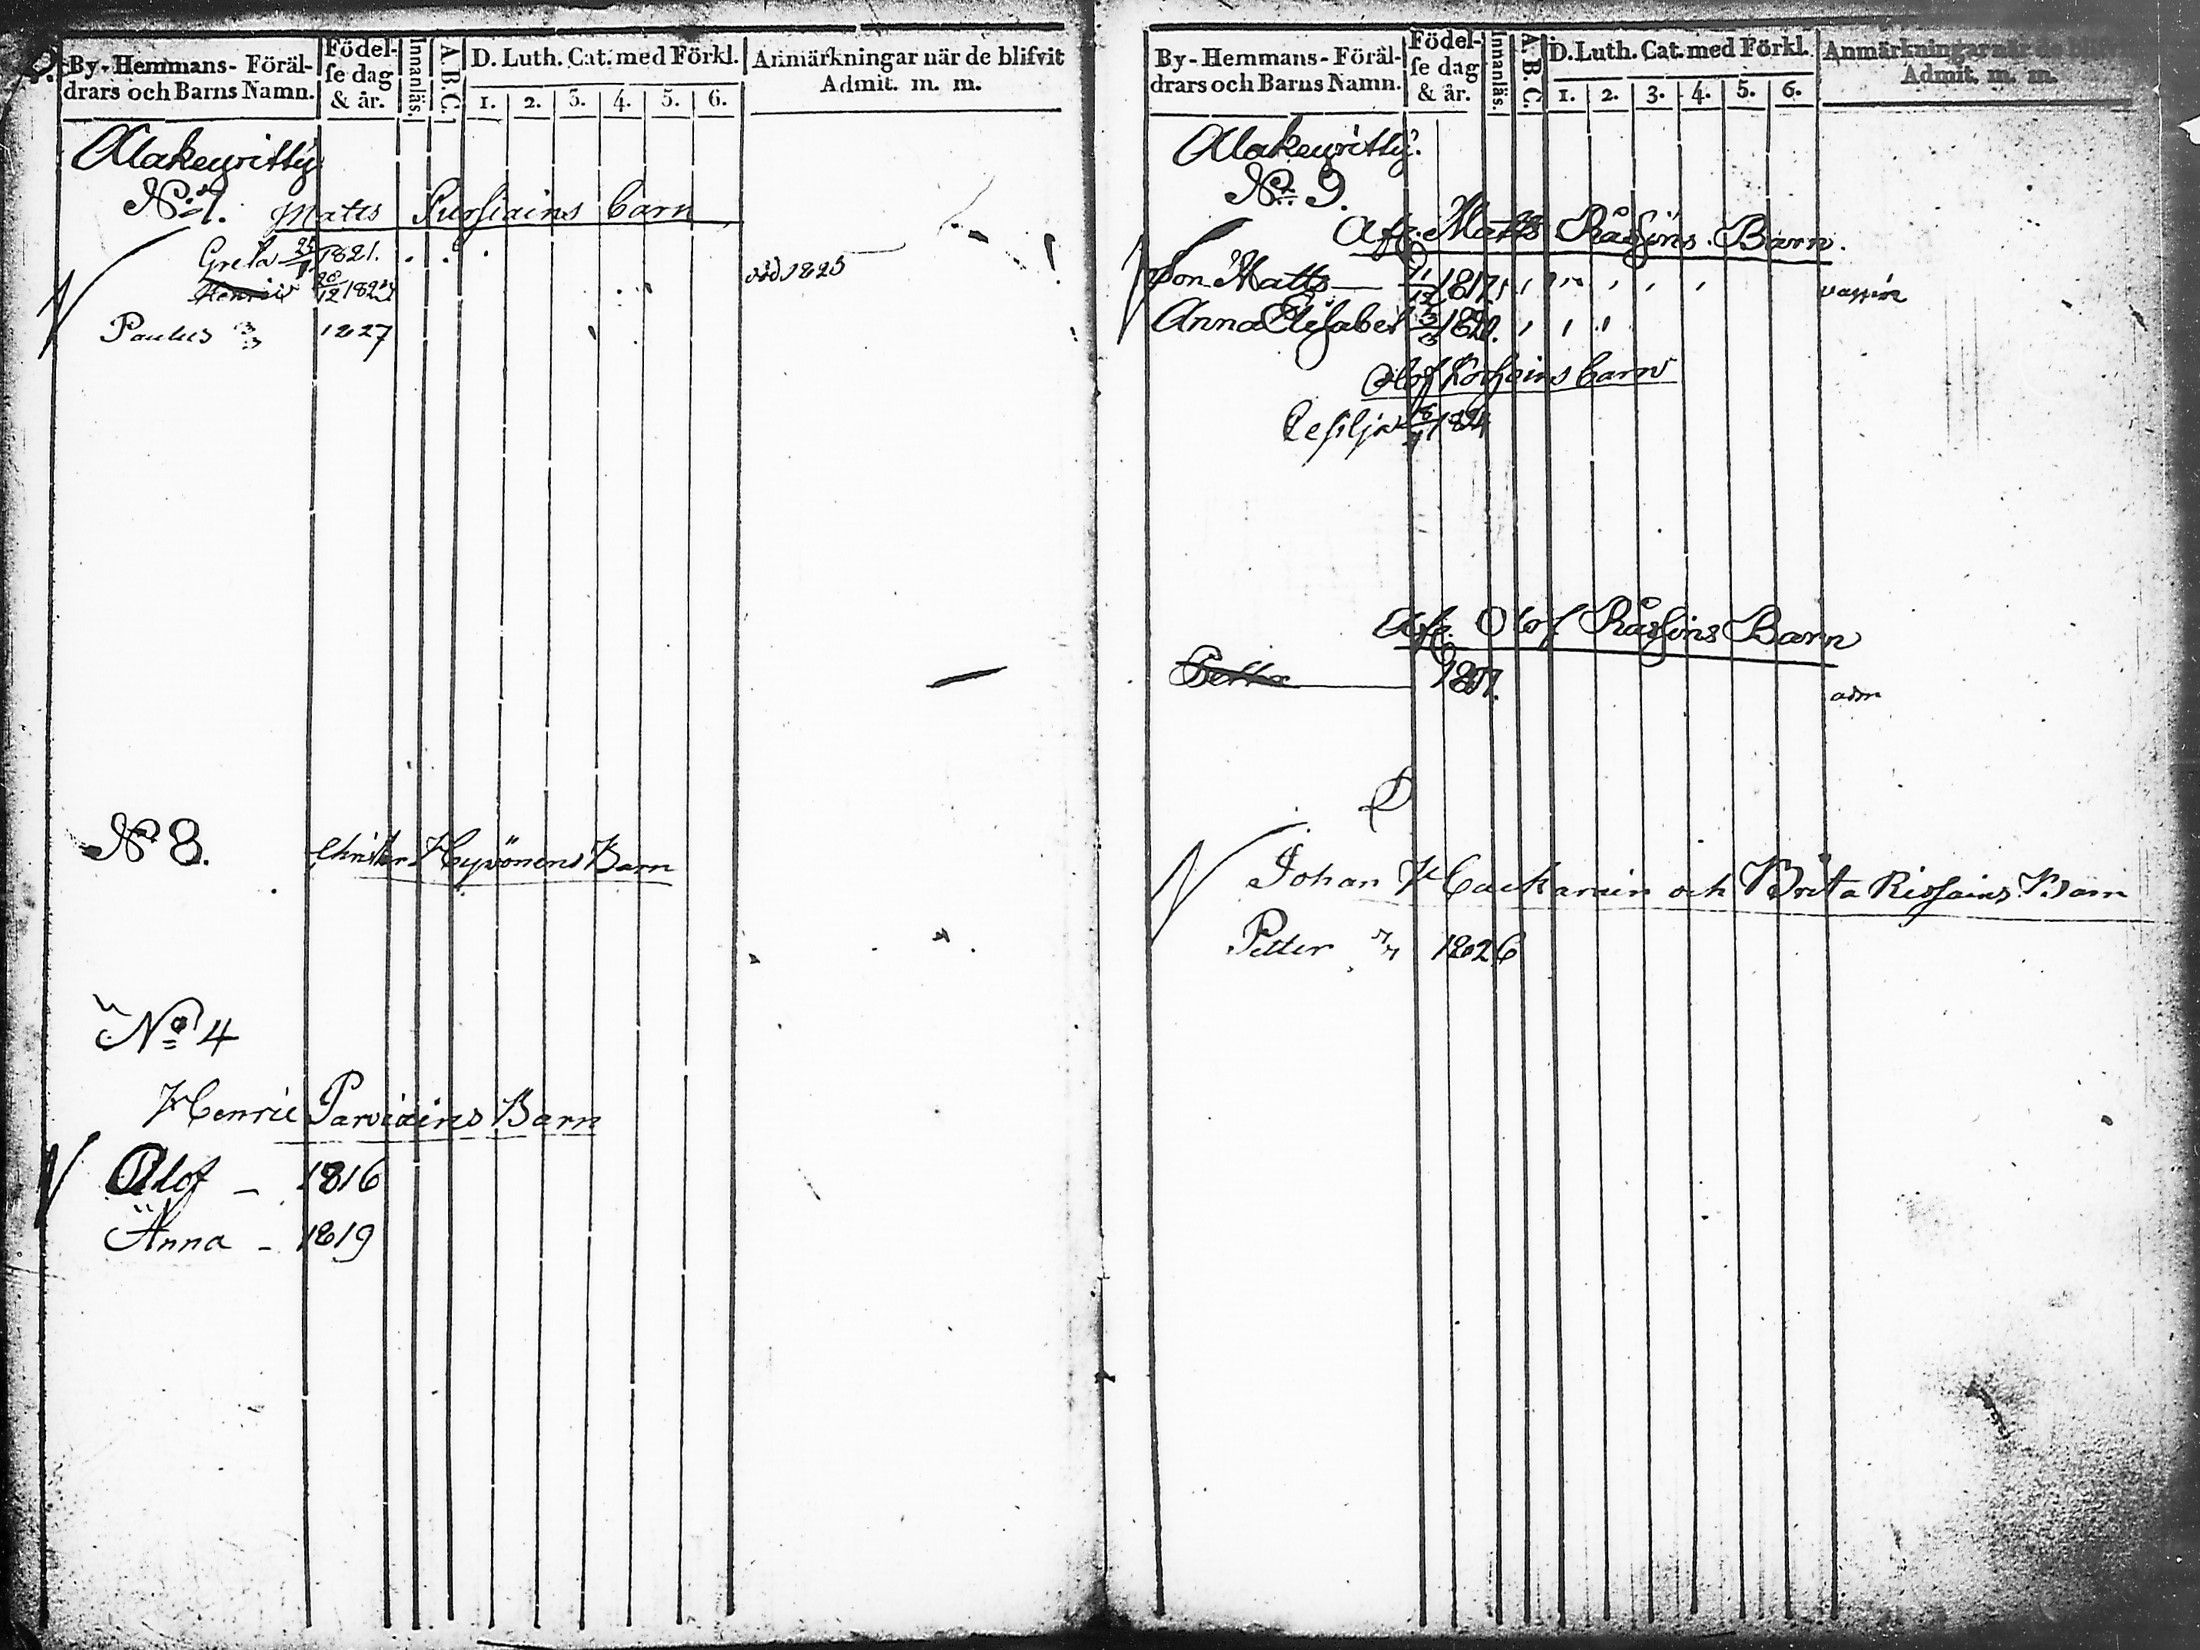 By-Hemmans-Föräl-
drars och Barns Namn.
Födel-
se dag
& år.
Innanläs.
A.B.C.
D. Luth. Cat. med Förkl.
1. 2. 3. 4. 5. 6.
Anmärkningar när de blifvit
Admit. m. m.
Alakeyritty
No 1. Matts Pursiains barn
Greta 1821.
Henric död 1825
Paulus 3/3 1827
No 8. Christer Hyvönens Barn
No 4
Henric Parviains Barn
Olof - 1816
Anna - 1819
By-Hemmans-Föräl-
drars och Barns Namn.
Födel-
se dag
& år.
Innanläs.
A.B.C.
D. Luth. Cat. med Förkl.
1. 2. 3. 4. 5. 6.
Anmärkningar när de blifvit
Admit. m. m.
Alakeyritty.
No 9.
Afl. Matts Råssins Barn.
Son Matts 1817
Anna Elisabet 1820.
Olof barn
Cesilja 1824
Afl. Olof Råssins Barn
1817. adm
Johan och Brita Rissains Barn
Petter 1826